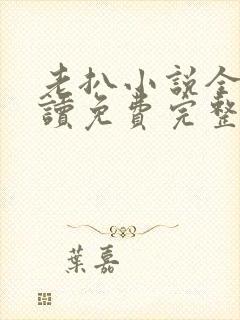 老扒小説全
讀免費完整
葉嘉